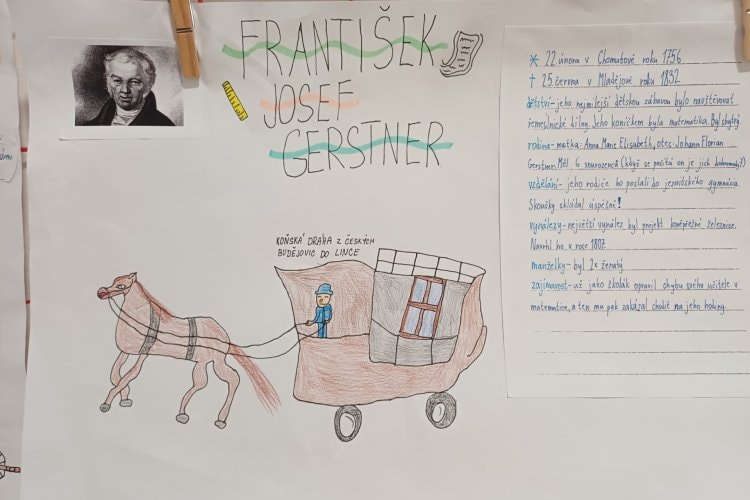 FRANTIŠEK
JOSEF
GERSTNER
KOŇSKÁ DRÁHA Z ČESKÝCH
BUDĚJOVIC DO LINCE
* 22. února v Chomutově roku 1756
† 25. června v Mladějově roku 1832
dětství - jeho nejmilejší dětskou zábavou bylo navštěvovat
řemeslnické dílny. Jeho koníčkem byla matematika. Byl chytrý.
rodina - matka: Anna Marie Elisabeth, otec: Johann Florian
Gerstner. Měl 6 sourozenců (když se počítá on je jich
vzdělání - jeho rodiče ho poslali do jezuitského gymnázia.
Zkoušky skládal úspěšně!
vynálezy - největší vynález byl projekt koněspřežné železnice.
Navrhl ho v roce 1807.
manželky - byl 2x ženatý
zajímavost - už jako školák opravil chybu svého učitele v
matematice, a ten mu pak zakázal chodit na jeho hodiny.